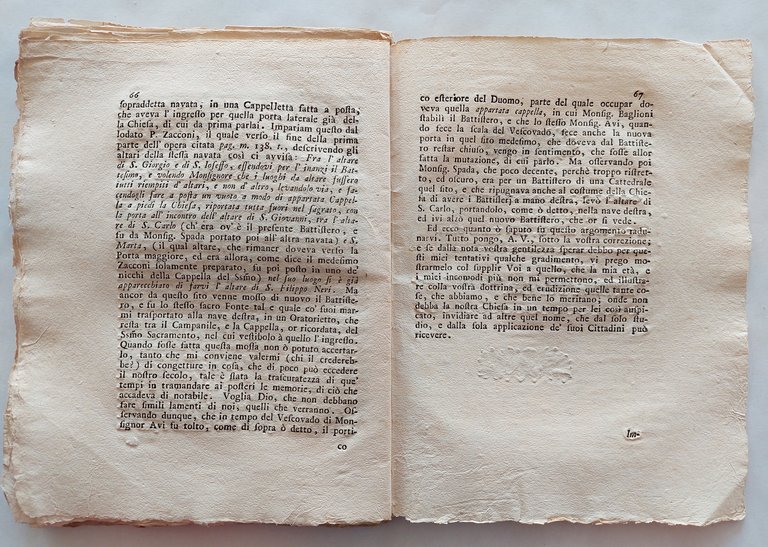 66
sopraddetta navata, in una Cappelletta fatta a posta,
che aveva l'ingresso per quella porta laterale già del-
la Chiesa, di cui da prima parlai. Impariam questo dal
lodato P. Zacconi, il quale verso il fine della prima
parte dell'opera citata pag. m. 138. t., descrivendo gli
altari della stessa navata così ci avvisa: Fra l'altare
di S. Giorgio e di S. Josesso, essendovi per l'inanzi il Bat-
tesimo, e volendo Monsignore che i luoghi da altare fussero
tutti riempiti d'altari, e non d'altro, levandolo via, e fa-
cendogli fare a posta un vuoto a modo di appartata Cappel-
la a piedi la Chiesa, riportata tutta fuori nel sagrato, con
la porta all'incontro dell'altare di S. Giovanni, tra l'alta-
re di S. Carlo (ch'era ov'è il presente Battistero, e
fu da Monsig. Spada portato poi all'altra navata) e S.
Marta, (il qual altare, che rimaner doveva verso la
Porta maggiore, ed era allora, come dice il medesimo
Zacconi solamente preparato, fu poi posto in uno de'
nicchi della Cappella del Ssmo) nel suo luogo si è già
apparecchiato di farvi l'altare di S. Filippo Neri. Ma
ancor da questo sito venne mosso di nuovo il Battiste-
ro, e fu lo stesso sacro Fonte tal e quale co' suoi mar-
mi trasportato alla nave destra, in un Oratorietto, che
resta tra il Campanile, e la Cappella, or ricordata, del
Ssmo Sacramento, nel cui vestibolo à quello l'ingresso.
Quando fosse fatta questa mossa non ò potuto accertar-
lo, tanto che mi conviene valermi (chi il credereb-
be?) di congetture in cosa, che di poco può eccedere
il nostro secolo, tale è stata la trascuratezza di que'
tempi in tramandare ai posteri le memorie, di ciò che
accadeva di notabile. Voglia Dio, che non debbano
fare simili lamenti di noi, quelli che verranno. Os-
servando dunque, che in tempo del Vescovado di Mon-
signor Avi fu tolto, come di sopra ò detto, il porti-
co
67
co esteriore del Duomo, parte del quale occupar do-
veva quella appartata cappella, in cui Monsig. Baglioni
stabilì il Battistero, e che lo stesso Monsig. Avi, quan-
do fece la scala del Vescovado, fece anche la nuova
porta in quel sito medesimo, che doveva dal Battiste-
ro restar chiuso, vengo in sentimento, che fosse allor
fatta la mutazione, di cui parlo. Ma osservando poi
Monsig. Spada, che poco decente, perchè troppo ristret-
to, ed oscuro, era per un Battistero di una Cattedrale
quel sito, e che ripugnava anche al costume della Chie-
sa di avere i Battisterj a mano destra, levò l'altare di
S. Carlo, portandolo, come ò detto, nella nave destra,
ed ivi alzò quel nuovo Battistero, che or si vede.
Ed ecco quanto ò saputo su questo argomento radu-
narvi. Tutto pongo, A. V., sotto la vostra correzione;
e se dalla vostra gentilezza sperar debbo per que-
sti miei tentativi qualche gradimento, vi prego mo-
strarmelo col supplir Voi a quello, che la mia età, e
i miei incomodi più non mi permettono, ed illustra-
re colla vostra dottrina, ed erudizione quelle tante co-
se, che abbiamo, e che bene lo meritano; onde non
debba la nostra Chiesa in un tempo per lei così ampi-
cato, invidiare ad altre quel nome, che dal solo stu-
dio, e dalla sola applicazione de' suoi Cittadini può
ricevere.
Im-